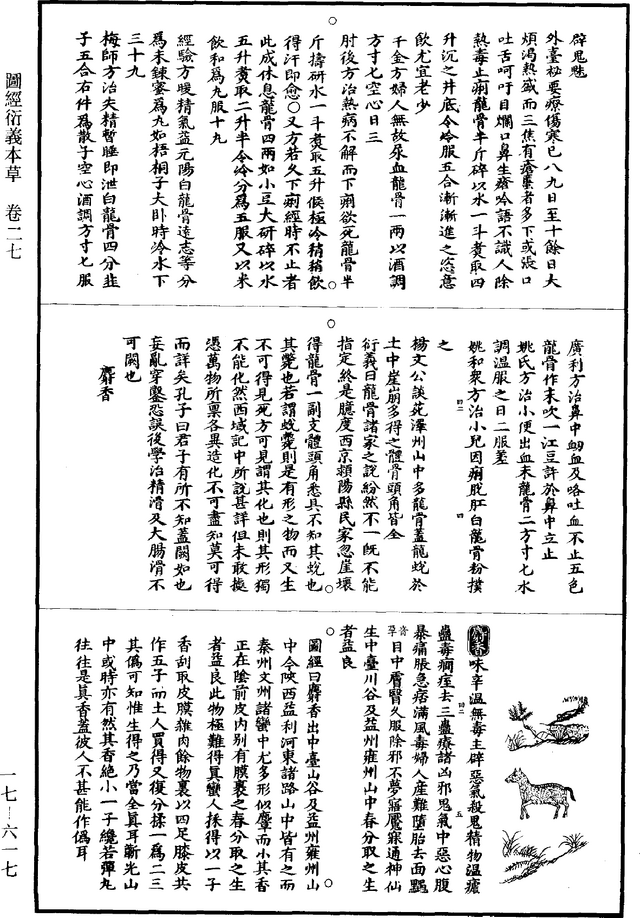 圖經衍義本草　卷二七
一七—六一七
辟鬼魅
外臺秘要療傷寒已八九日至十餘日大
煩渴熱盛而三焦有瘡䘌者多下或張口
吐舌呵吁目爛口鼻生瘡吟語不識人除
熱毒止痢龍骨半斤碎以水一斗煑取四
升沉之井底令冷服五合漸漸進之恣意
飲尤宜老少
千金方婦人無故尿血龍骨一兩以酒調
方寸七空心日三
肘後方治熱病不解而下痢欲死龍骨半
斤擣研水一斗煑取五升候極冷稍稍飲
得汗即愈〇又方若久下痢經時不止者
此成休息龍骨四兩如小豆大研碎以水
五升煑取二升半令冷分爲五服又以米
飲和爲丸服十丸
經驗方暖精氣益元陽白龍骨遠志等分
爲末鍊蜜爲丸如梧桐子大卧時冷水下
三十丸
梅師方治失精暫睡即泄白龍骨四分韭
子五合右件爲散子空心酒調方寸七服
廣利方治鼻中衄血及咯吐血不止五色
龍骨作末吹一江豆許於鼻中立止
姚氏方治小便出血末龍骨二方寸七水
調温服之日二服差
姚和衆方治小兒因痢脫肛白龍骨粉撲
之
楊文公談苑澤州山中多龍骨蓋龍蛻於
土中崖崩多得之體骨頭角皆全
衍義曰龍骨諸家之說紛然不一旣不能
指定終是臆度西京潁陽縣民家忽崖壞
得龍骨一副支體頭角悉具不知其蛻也
其斃也若謂蛻斃則是有形之物而又生
不可得見死方可見謂其化也則其形獨
不能化然西域記中所說甚詳但未敢據
憑萬物所稟各異造化不可盡知莫可得
而詳矣孔子曰君子有所不知蓋闕如也
妄亂穿鑿恐誤後學治精滑及大腸滑不
可闕也
麝香
味辛温無毒主辟惡氣殺鬼精物温瘧
蠱毒癇痓去三蟲療諸凶邪鬼氣中惡心腹
暴痛脹急痞滿風毒婦人產難墮胎去面䵟
目中膚瞖久服除邪不夢寤魘寐通神仙
生中臺川谷及益州雍州山中春分取之生
者益良
圖經曰麝香出中臺山谷及益州雍州山
中今陝西益利河東諸路山中皆有之而
秦州文州諸蠻中尤多形似麞而小其香
正在陰前皮内别有膜裹之春分取之生
者益良此物極難得真蠻人採得以一子
香刮取皮膜雜肉餘物裹以四足膝皮共
作五子而土人買得又復分揉一爲二三
其僞可知惟生得之乃當全真耳蘄光山
中或時亦有然其香絶小一子纔若彈丸
往往是真香蓋彼人不甚能作僞耳